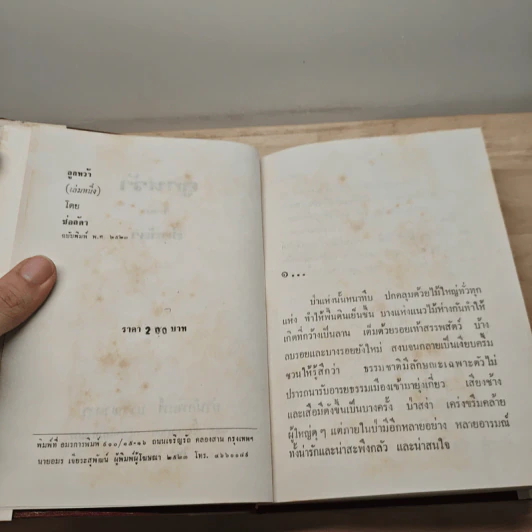 ลูกหว้า
(เล่มหนึ่ง)
โดย
ช่อลัดา
ฉบับพิมพ์ พ.ศ. ๒๕๒๓
ราคา
บาท
พิมพ์ที่ อมรการพิมพ์ ๖๐๐/๑๕-๑๖ ถนนเจริญรัถ คลองสาน กรุงเทพฯ
นายอมร เจียระสุพัฒน์ ผู้พิมพ์ผู้โฆษณา ๒๕๒๓ โทร.
๑...
ป่าแห่งนั้นหนาทึบ ปกคลุมด้วยไม้ใหญ่ทั่วทุก
แห่ง ทำให้พื้นดินเย็นชื้น บางแห่งแนวไม้ห่างกันทำให้
เกิดที่กว้างเป็นลาน เต็มด้วยรอยเท้าสรรพสัตว์ บ้าง
ลบรอยและบางรอยยังใหม่ สงบจนกลายเป็นเงียบครึ้ม
ชวนให้รู้สึกว่า ธรรมชาติมีลักษณะเฉพาะตัวไม่
ปรารถนารับอารยธรรมเมืองเข้ามายุ่งเกี่ยว เสียงช้าง
และเสือมีดังขึ้นเป็นบางครั้ง น่าสง่า เคร่งขรึมคล้าย
ผู้ใหญ่ดุ ๆ แต่ภายในป่ามีอีกหลายอย่าง หลายอารมณ์
ทั้งน่ารักและน่าสะพึงกลัว และน่าสนใจ